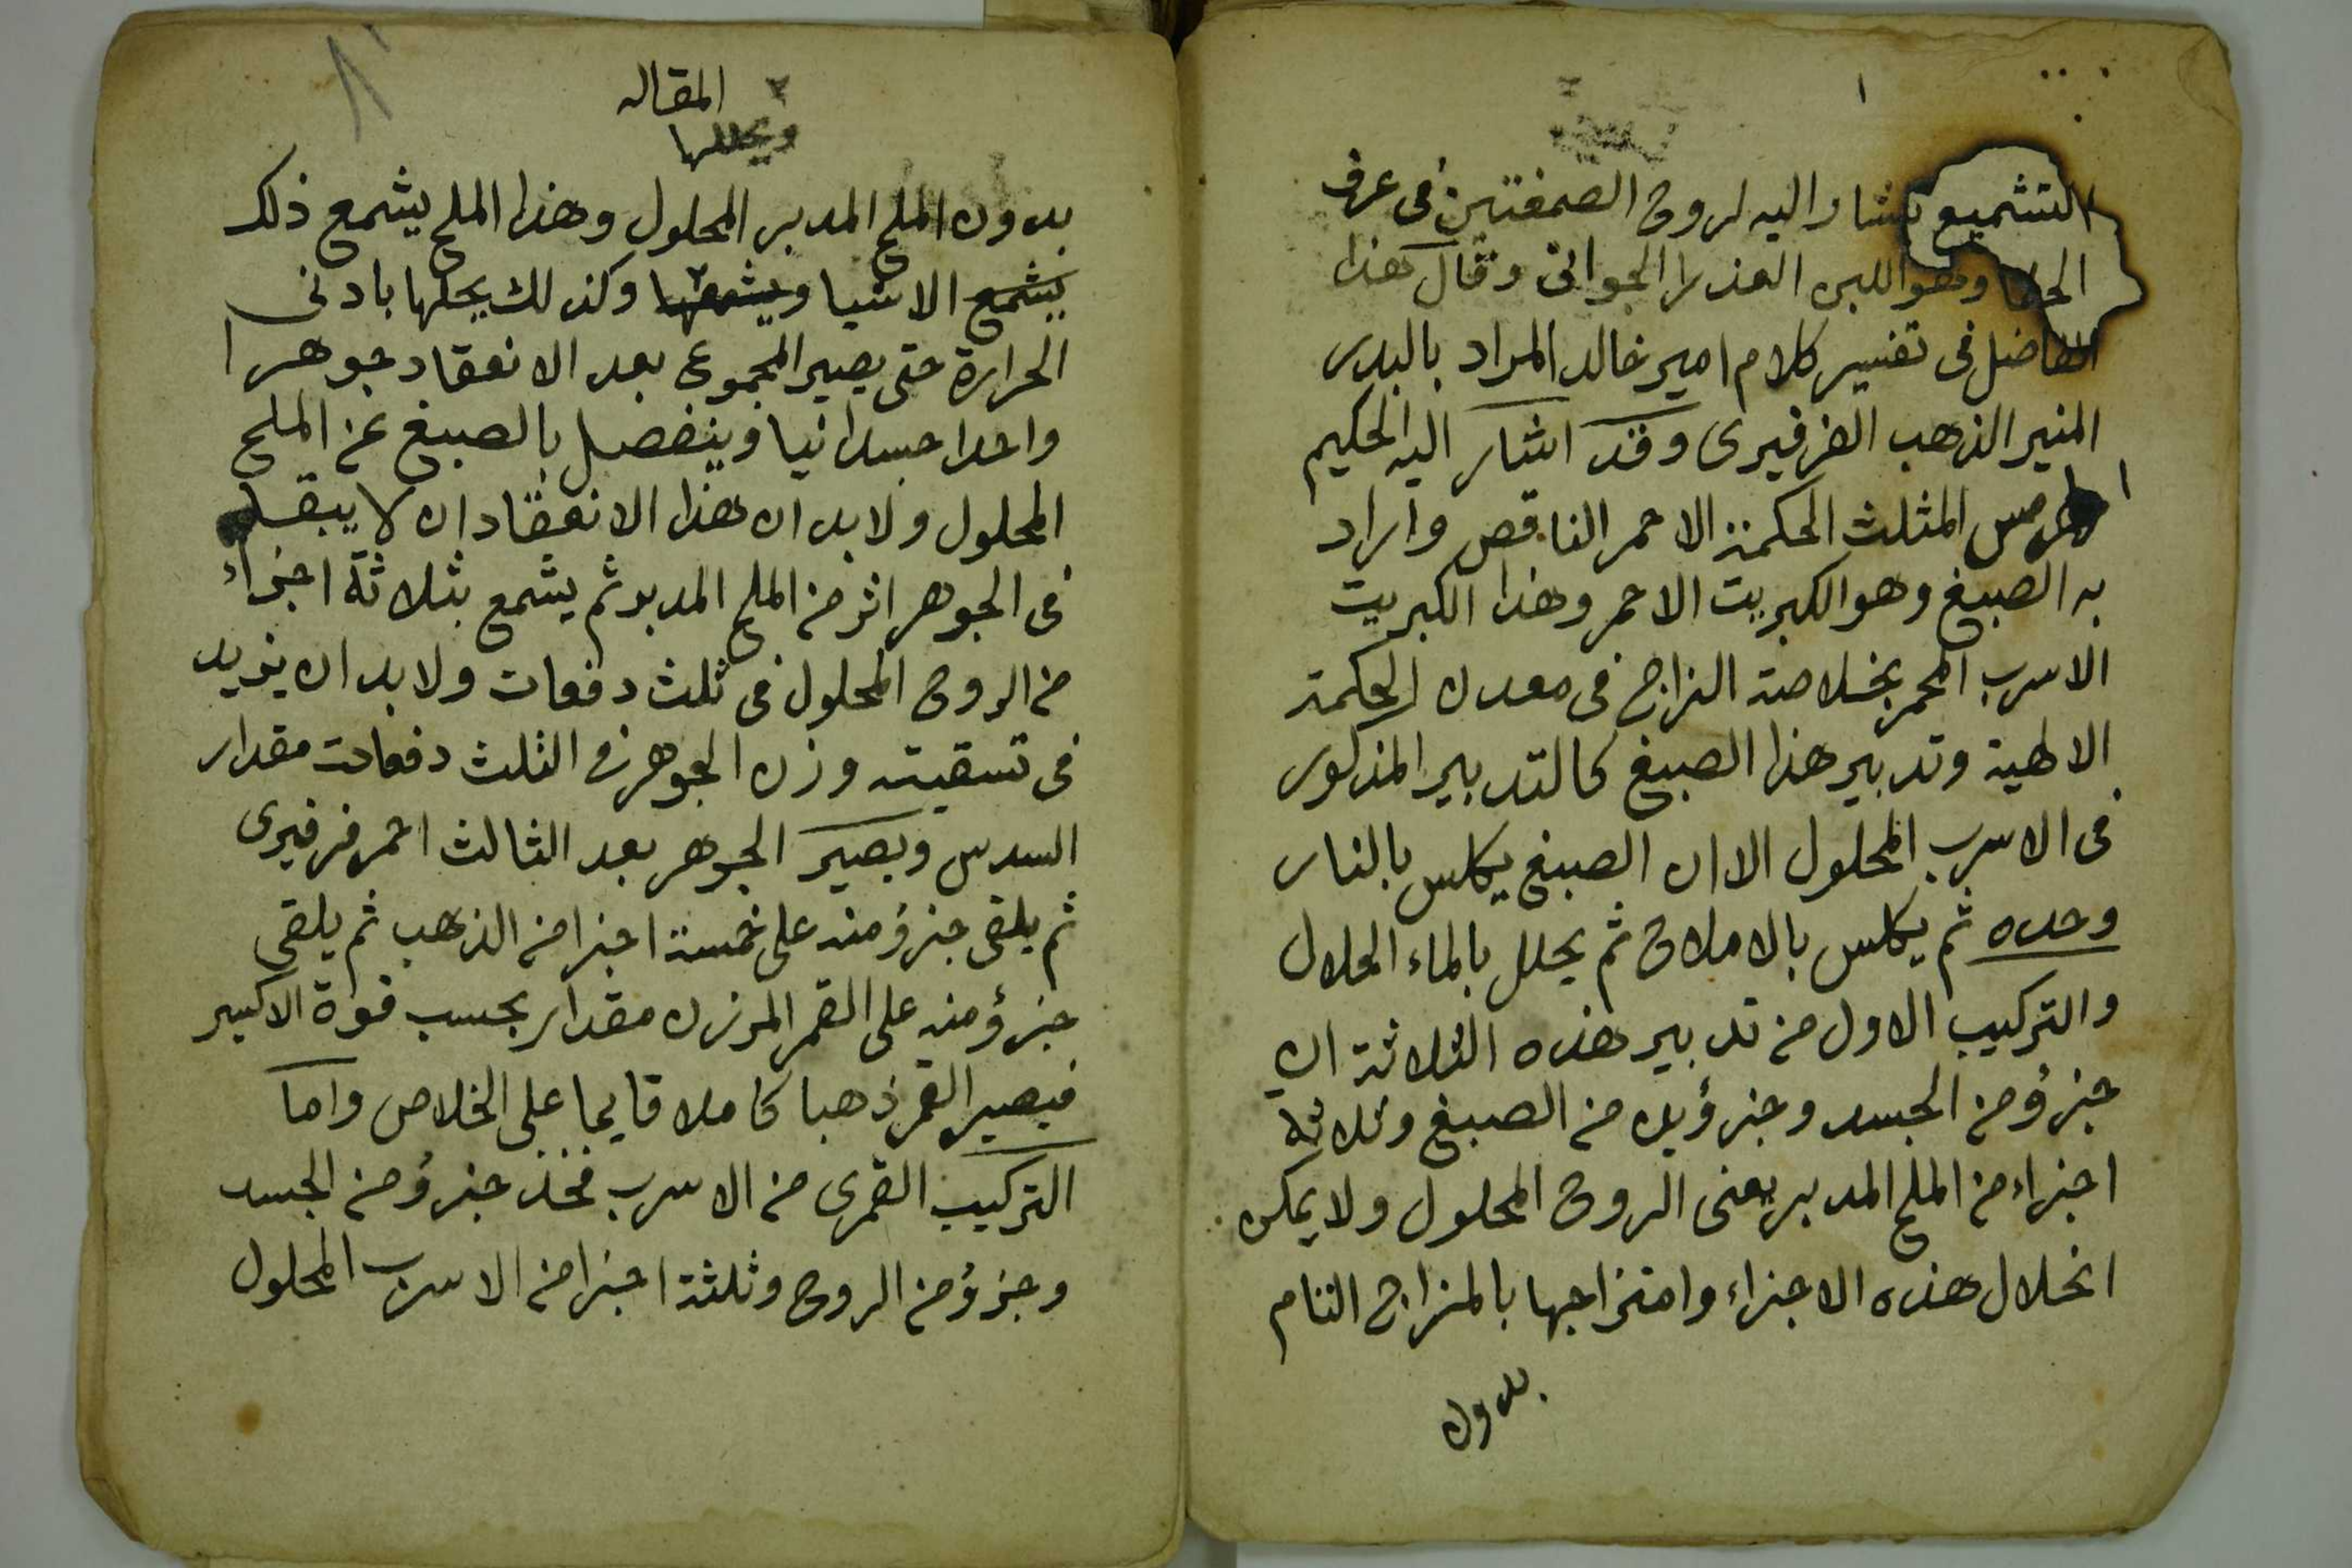 ١
التشميع يشار اليه لروح الصمغتين فى عرف
الحكما وهو اللبن العذرا الجوانى وقال هذا
الفاضل فى تفسير كلام امير خالد المراد بالبدر
المنير الذهب الفرفيرى وقد اشار اليه الحكيم
هرمس المثلث الحكمة الاحمر الناقص واراد
به الصبغ وهو الكبريت الاحمر وهذا الكبريت
الاسرب المحمر بخلاصة الزاج فى معدن الحكمة
الالهية وتدبير هذا الصبغ كالتدبير المذكور
فى الاسرب المحلول الا ان الصبغ يكلس بالنار
وحده ثم يكلس بالاملاح ثم يحلل بالماء الحلال
والتركيب الاول من تدبير هذه الثلاثة ان
جزؤ من الجسد وجزؤين من الصبغ وثلاثة
اجزاء من الملح المدبر يعنى الروح المحلول ولا يمكن
انحلال هذه الاجزاء وامتزاجها بالمزاج التام
بدون
المقاله
ويحللها
بدون الملح المدبر المحلول وهذا الملح يشمع ذلك
يشمع الاشيا ويشمعها وكذلك يحلها بادنى
الحرارة حتى يصير المجموع بعد الانعقاد جوهرا
واحدا جسدانيا وينفصل بالصبغ عن الملح
المحلول ولا بد ان هذا الانعقاد ان لا يبقى
فى الجوهر اثر من الملح المدبر ثم يشمع بثلاثة اجزاء
من الروح المحلول فى ثلث دفعات ولا بد ان يزيد
فى تسقيته وزن الجوهر فى الثلث دفعات مقدار
السدس ويصير الجوهر بعد الثالث احمر فرفيرى
ثم يلقى جزؤ منه على خمسة اجزا من الذهب ثم يلقى
جزؤ منه على القمر المرزن مقدار بحسب قوة الاكسير
فيصير القمر ذهبا كاملا قايما على الخلاص واما
التركيب القمرى من الاسرب فخذ جزؤ من الجسد
وجزؤ من الروح وثلثة اجزا من الاسرب المحلول